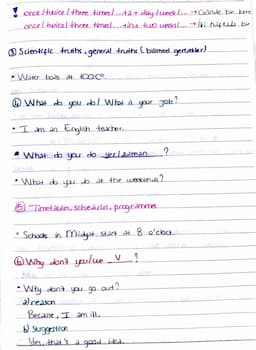 ! once/twice/three times/...+a+day/week/... → Günde bir kere
once/twice/three times/...+in+two weeks/... → İki haftada bir
③ Scientific truths, general truths (bilimsel gerçekler)
• Water boils at 100C°.
④ What do you do? What is your job?
• I am an English teacher.
* What do you do yer/zaman ?
• What do you do at the weekends?
⑤ Timetables, schedules, programmes
• Schools in Midyat start at 8 o'clock.
⑥ Why don't you/we V ?
• Why don't you go out?
a) reason
Because, I am ill.
b) suggestion
Yes, that's a good idea.